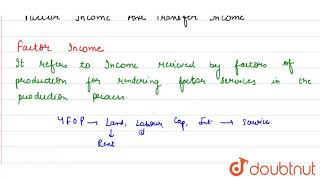 Factor Income And Transfer Income
Factor Income
It refers to Income recieved by factors of
production for rendering factor services in the
production process.
4FOP → Land, Labour Cap, Ent → Services
↓ ↓
Rent
doubtnut